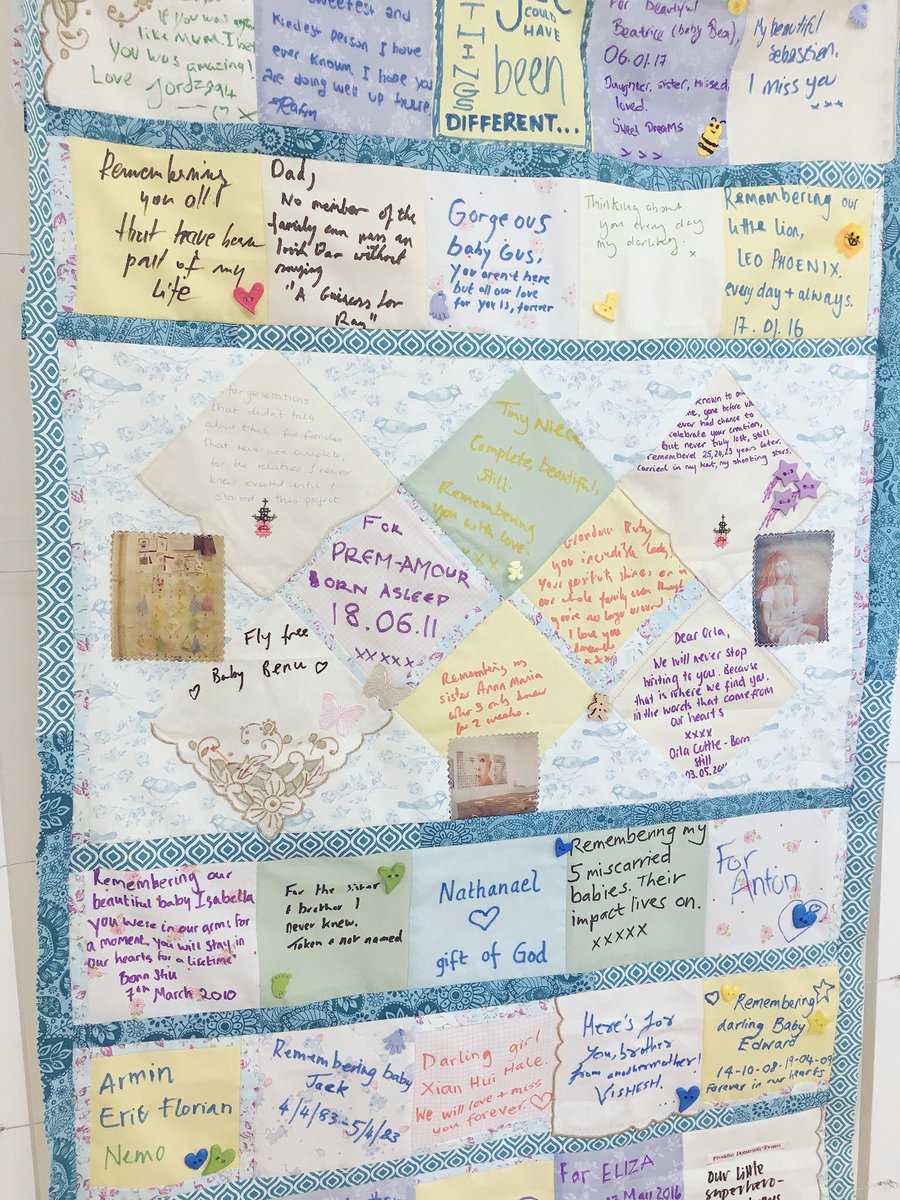 If you was
like Mum. I bet
You was amazing!
Love Jordz994
x
sweetest and
kindest person I have
ever known. I hope you
are doing well up there.
THINGS
COULD HAVE
been
DIFFERENT...
For beautiful
Beatrice (baby Bea),
06.01.17
Daughter, sister, missed,
loved.
Sweet Dreams
x x x
My beautiful
Sebastian.
I miss you
x x x
Remembering
you all!
that have been
part of my
life
Dad,
No member of the
family can pass an
Irish Bar without
saying
"A Guiness for
Ray"
Gorgeous
baby Gus,
you aren't here
but all our love
for you is, forever
Thinking about
you every day
my darling. x
Remembering our
little lion,
LEO PHOENIX.
every day + always.
17.01.16
For generations
that didn't talk
about this, for families
that never were complete,
for the relatives I never
knew existed until I
started this project.
Tiny Niece
Complete, beautiful,
Still.
Remembering
you with love.
x x x
known to
me, gone before we
ever had chance to
celebrate your creation,
but never truly lost, still
remembered 25, 24, 23 years later.
carried in my heart, my shooting stars.
For
PREM-AMOUR
BORN ASLEEP
18.06.11
xxxxx
Grandma Ruby
you incredible lady,
Your positivity shines on in
our whole family even though
you're no longer around
I love you
x x x
Fly free
Baby Benu
Remembering my
sister Anna Maria
who I only knew
for 2 weeks.
Dear Orla,
We will never stop
writing to you. Because
that is where we find you.
in the words that come from
our hearts
xxxx
Orla Cuttle - Born
Still
Remembering our
beautiful baby Isabella
you were in our arms for
a moment. you will stay in
our hearts for a lifetime"
Born Still
7th March 2010
For the sister
& brother I
never knew.
Taken & not named
Nathanael
gift of God
Remembering my
5 miscarried
babies. Their
impact lives on.
xxxxx
For
Anton
Armin
Erit Florian
Nemo
Remembering baby
Jack
4/4/83-5/4/83
Darling girl
Xian Hui Hale
We will love + miss
you forever.
Here's for
you, brother
from another mother!
VISHESH.
Remembering
darling Baby
Edward
14-10-08-19-04-09
Forever in our hearts!
For ELIZA
May 2016
Freddie Dominion-Evans
Our little
superhero-